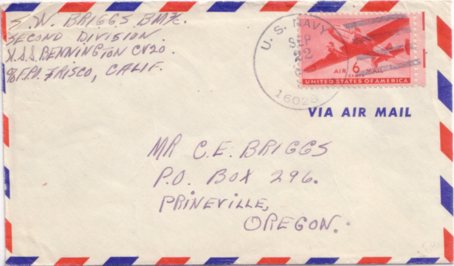 S.W. BRIGGS BM2c.
SECOND DIVISION
U.S.S. BENNINGTON CV20.
% F.P.O. FRISCO, CALIF.
U. S. NAVY
SEP
2
16028
AIR 6¢ MAIL
UNITED STATES OF AMERICA
VIA AIR MAIL
MR C.E. BRIGGS
P.O. BOX 296.
PRINEVILLE,
OREGON.